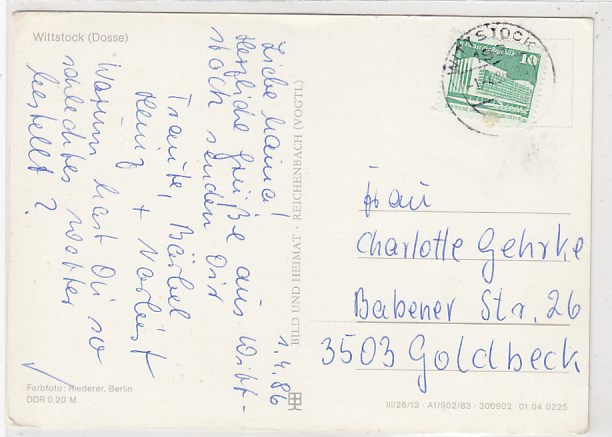 Wittstock (Dosse)
1.4.86
Liebe Mama!
Herzliche Grüße aus Witt-
stock senden Dir
Traute, Bärbel
Heinz + Norbert
Warum hast Du so
schlechtes Wetter
bestellt?
Farbfoto: Riederer, Berlin
DDR 0,20 M
BILD UND HEIMAT · REICHENBACH (VOGTL)
WITTSTOCK
10
Frau
Charlotte Gehrke
Babener Str. 26
3503 Goldbeck
III/26/13 · A1/902/83 · 300902 01 04 0225